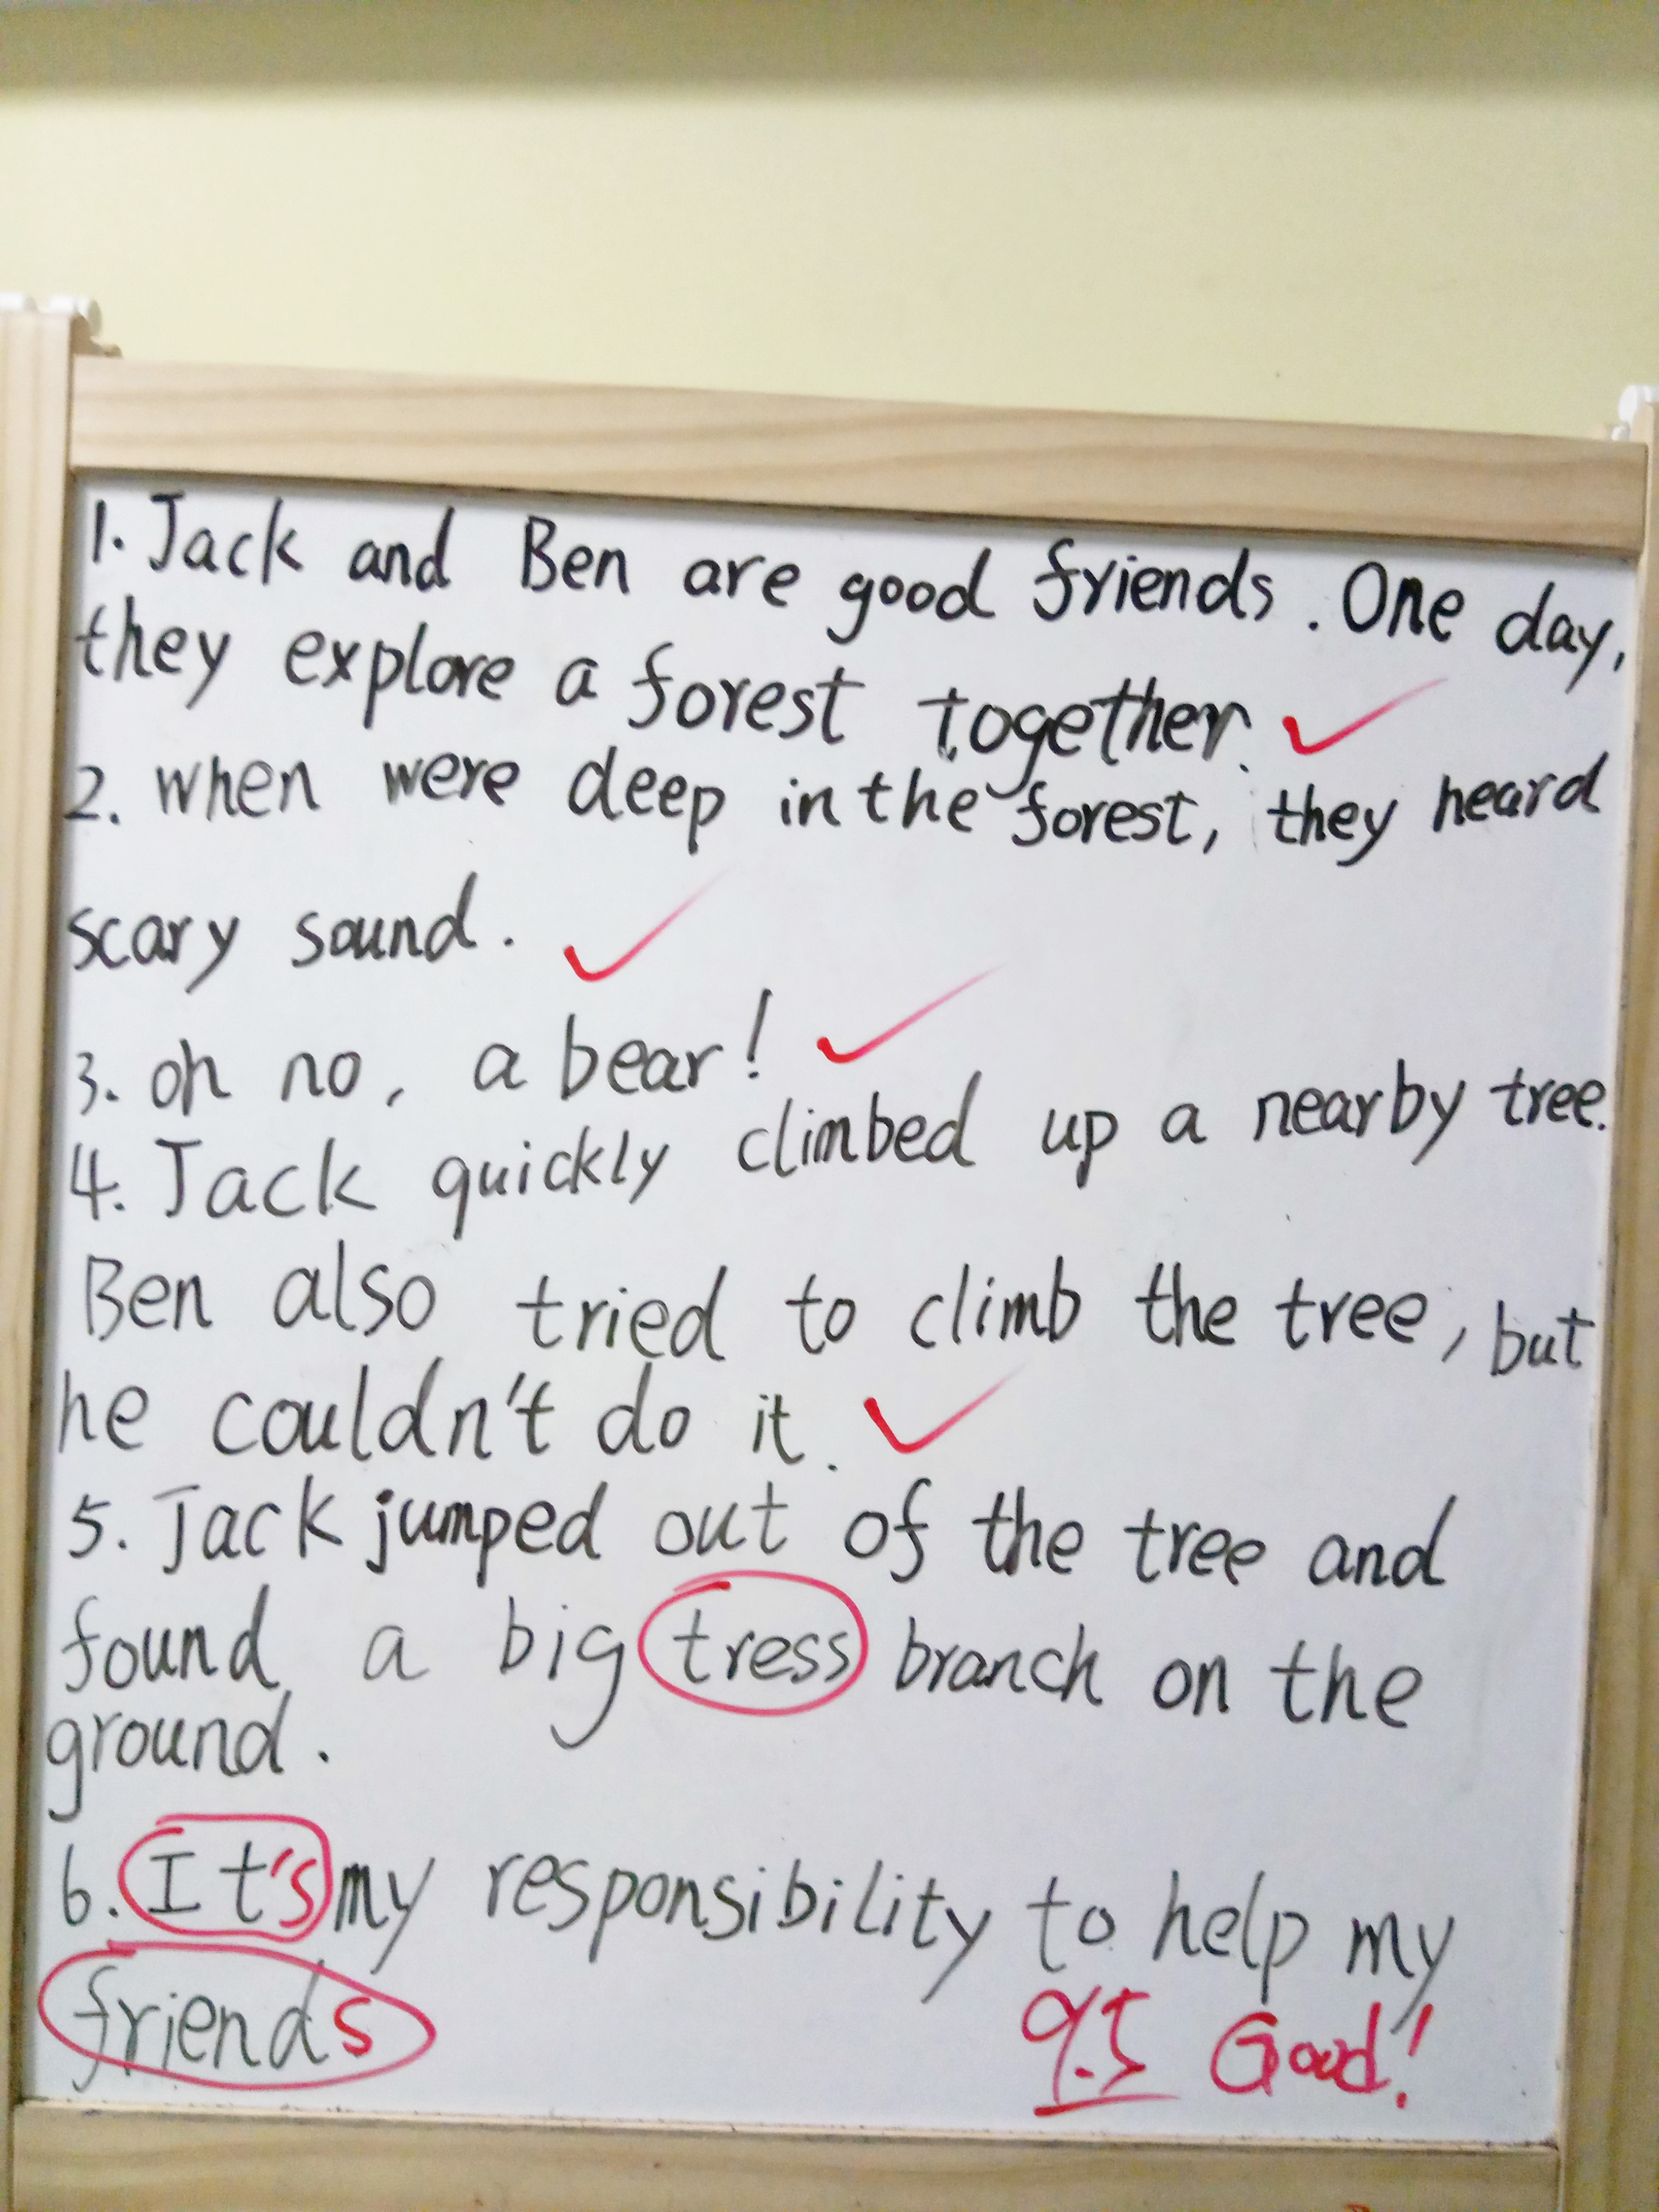 1. Jack and Ben are good friends. One day,
they explore a forest together.
2. when were deep in the forest, they heard
scary sound.
3. oh no, a bear!
4. Jack quickly climbed up a nearby tree.
Ben also tried to climb the tree, but
he couldn't do it.
5. Jack jumped out of the tree and
found a big tress branch on the
ground.
6. It's my responsibility to help my
friends
95 Good!